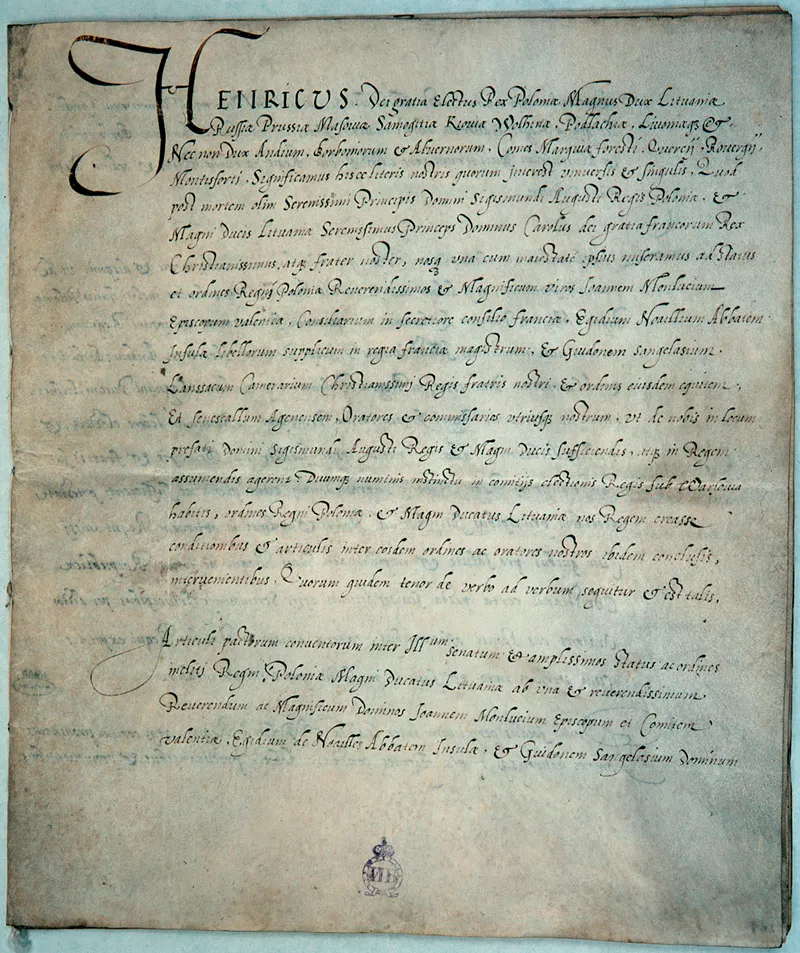 HENRICVS. Dei gratia Electus Rex Poloniæ Magnus Dux Lituaniæ
Russiæ Prussiæ Masoviæ Samogitiæ Kioviæ Wolhiniæ, Podlachiæ, Livoniæqȝ &.
Nec non Dux Andium, Borboniorum & Alvernorum, Comes Marquiæ foresti, Quercij, Rovergij,
Montisforti, Significamus hisce literis nostris quorum interest vniversis & singulis, Quod
post mortem olim Serenissimi Principis Domini Sigismundi Augusti Regis Poloniæ, &
Magni Ducis Lituaniæ Serenissimus Princeps Dominus Carolus dei gratia francorum Rex
Christianissimus, atqȝ frater noster, nosqȝ vna cum maiestate ipsius miseramus ad Status
et ordines Regni Poloniæ Reverendissimos & Magnificum viros Joannem Monlucium
Episcopum valentiæ, Consiliarium in secretiore consilio franciæ, Egidium Noaillium Abbatem
Insulæ libellorum supplicum in regia franciæ magistrum, & Guidonem sangelasium
Lanssacum Camerarium Christianissimi Regis fratris nostri, & ordinis eiusdem equitem,
Et senescallum Agenensem, Oratores & commissarios vtriusqȝ nostrum, vt de nobis in locum
prefati Domini Sigismundi Augusti Regis & Magni Ducis sufficiendis, atqȝ in Regem
assumendis agerent, Divinoqȝ numinis instinctu in comitijs electionis Regis sub Warsovia
habitis, ordines Regni Poloniæ, & Magni Ducatus Lituaniæ nos Regem creasse
conditionibus & articulis inter eosdem ordines ac oratores nostros ibidem conclusis,
intervenientibus, Quorum quidem tenor de verbo ad verbum sequitur & est talis,
Articuli pactorum conventorum inter Illum senatum & amplissimos Status ac ordines
inclitj Regni Poloniæ Magni Ducatus Lituaniæ ab vna & reverendissimum
Reverendum ac Magnificum Dominos Joannem Monlucium Episcopum et Comitem
valentiæ, Egidium de Noailles Abbatem Insulæ, & Guidonem Sangelasium Dominum